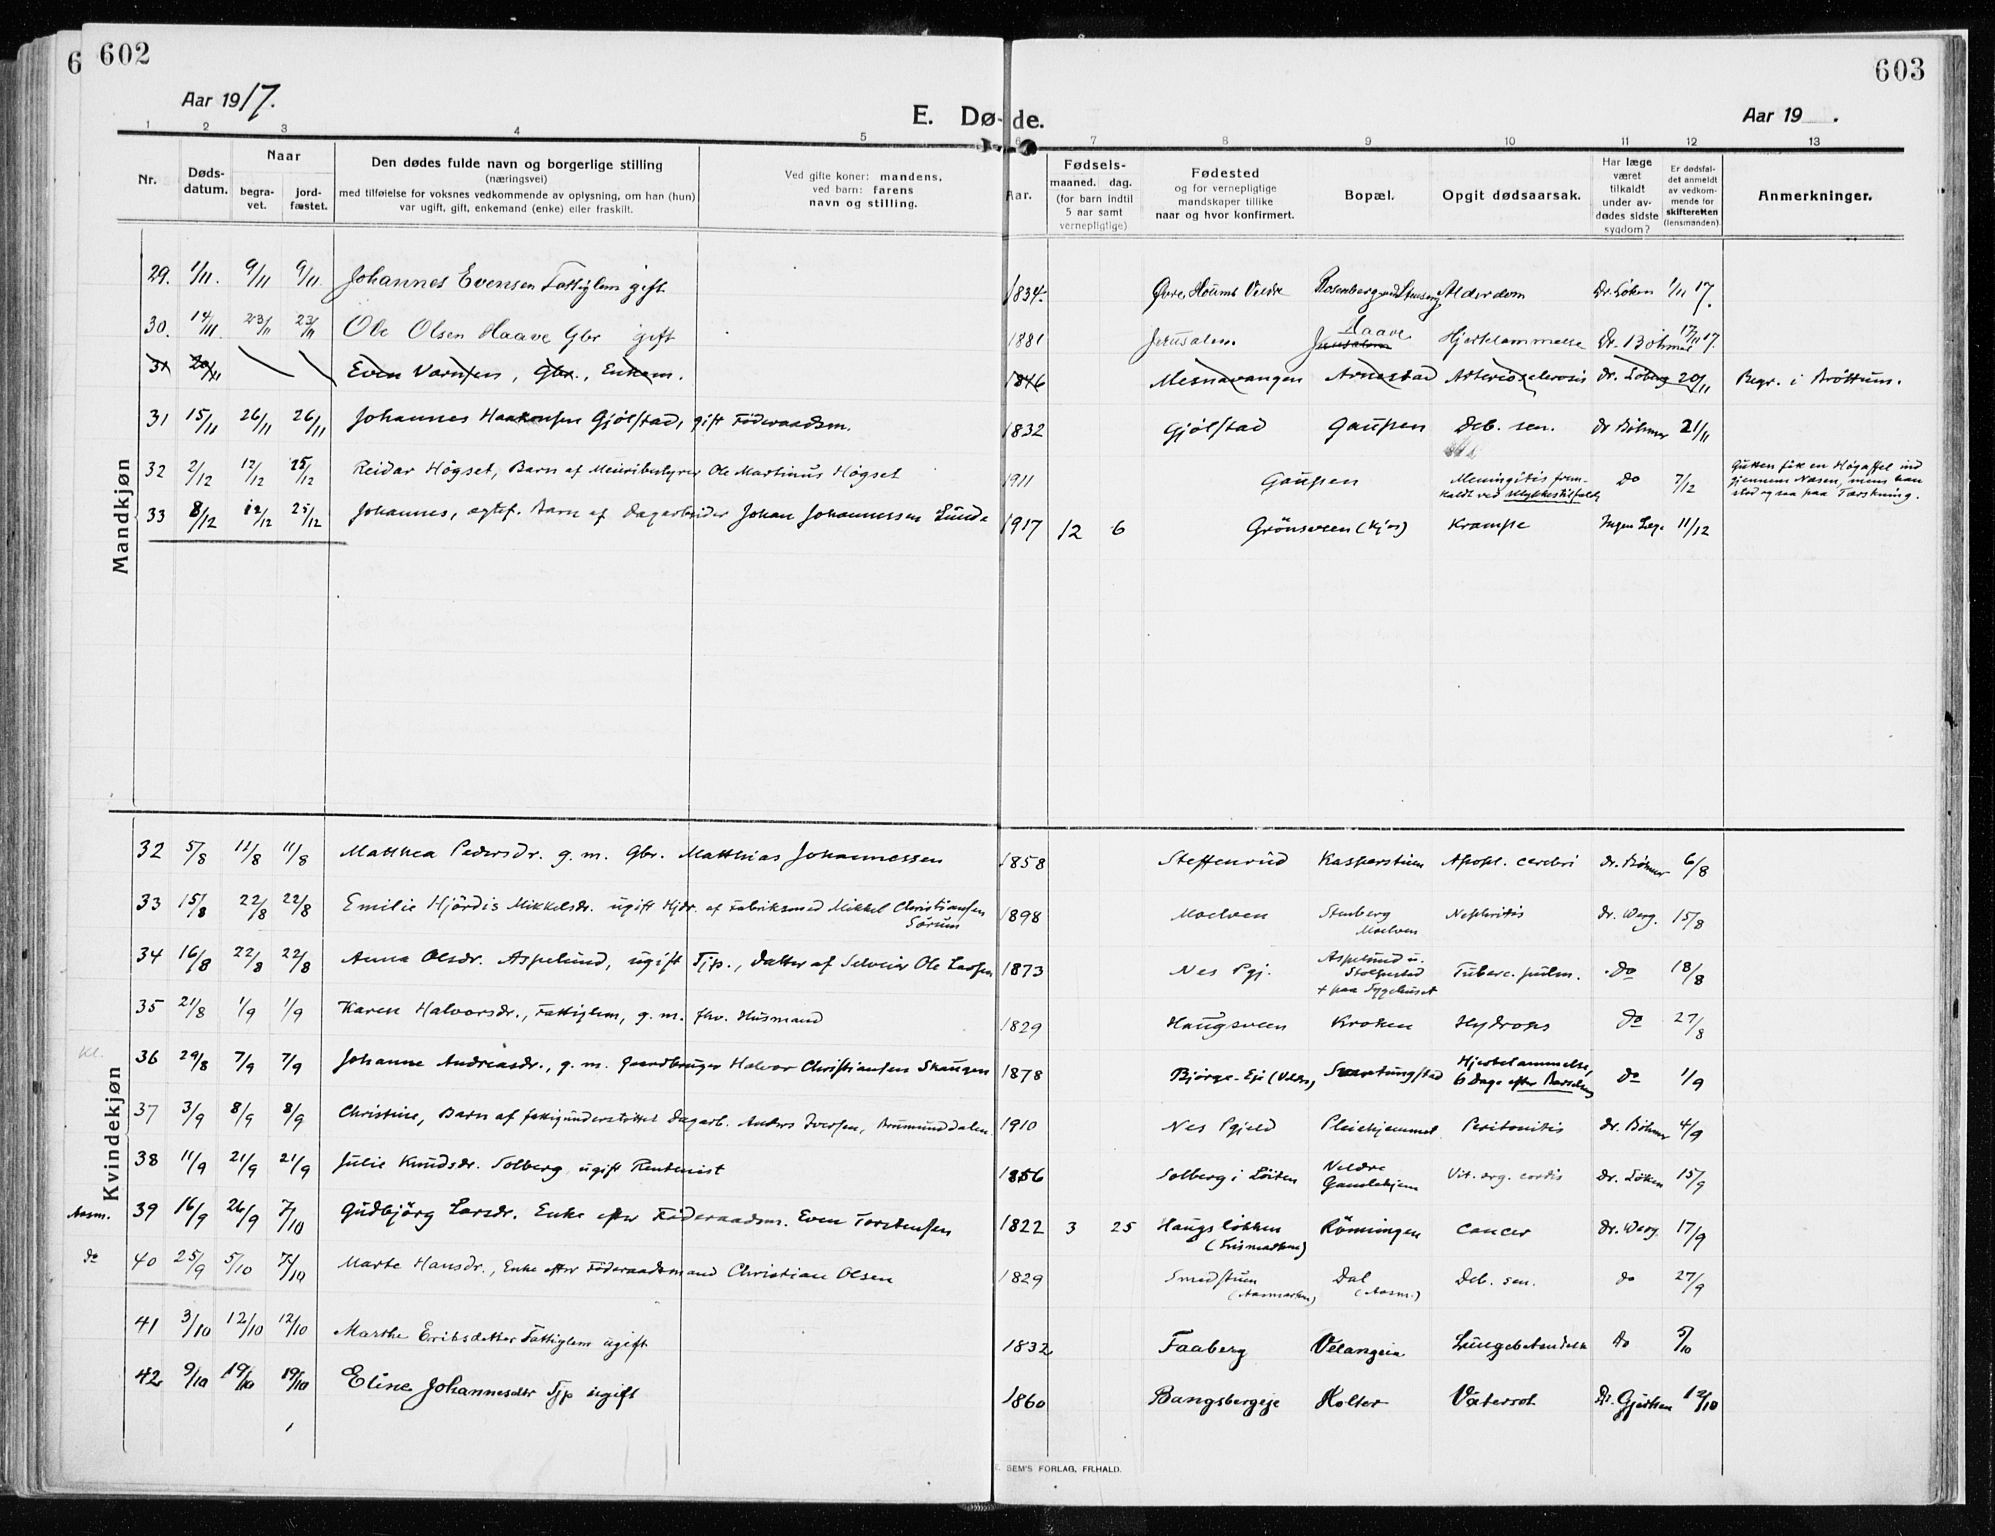 602
603
6
Aar 1917.
E. Dø-de.
Aar 19 .
1 2 3 4 5 6 7 8 9 10 11 12 13
Nr.
Døds-
datum.
Naar
begra-
vet.
jord-
fæstet.
Den dødes fulde navn og borgerlige stilling
(næringsvei)
med tilføielse for voksnes vedkommende av oplysning, om han (hun)
var ugift, gift, enkemand (enke) eller fraskilt.
Ved gifte koner: mandens,
ved barn: farens
navn og stilling.
Aar.
Fødsels-
maaned. dag.
(for barn indtil
5 aar samt
vernepligtige)
Fødested
og for vernepligtige
mandskaper tillike
naar og hvor konfirmert.
Bopæl.
Opgit dødsaarsak.
Har læge
været
tilkaldt
under av-
dødes sidste
sygdom?
Er dødsfal-
det anmeldt
av vedkom-
mende for
skifteretten
(lensmanden)
Anmerkninger.
Mandkjøn
29. 1/11. 9/11 9/11 Johannes Evensen Fattiglem gift 1834 Øvre Houms Veldre Rosenberg Alderdom Dr. Løken 1/11 17.
30. 14/11 23/11 23/11 Ole Olsen Haave Gbr gift 1881 Jerusalem Haave Jerusalem Hjertelammelse Dr. Böhmer 17/11 17.
31 20/11 Even Varnsen, Gbr., Enkem. 1846 Mesnavangen Arnestad Arteriosclerosis Dr. Loberg 20/11 Begr. i Brøttum.
31 15/11 26/11 26/11 Johannes Haakensen Gjølstad, gift Föderaadsm. 1832 Gjølstad Gaupen Deb. sen. Dr Böhmer 21/11
32 2/12 12/12 25/12 Reidar Högset, Barn af Meieribestyrer Ole Martinus Högset 1911 Gaupen Meningitis frem-
kaldt ved Ulykkestilfælde Do 7/12 Gutten fik en Høgaffel ind
gjennem Næsen, mens han
stod og saa paa Tærskning.
33 8/12 12/12 25/12 Johannes, egtef. Barn af Dagarbeider Johan Johannessen Lunde 1917 12 6 Grönsveen (Kjos) Krampe Ingen Læge 11/12
Kvindekjøn
32 5/8 11/8 11/8 Matthea Pedersdr. g. m. Gbr. Matthias Johannessen 1858 Steffenrud Kasperstuen Apopl. cerebri Dr. Böhmer 6/8
33 15/8 22/8 22/8 Emilie Hjördis Mikkelsdr. ugift Hjdr. af Fabriksmed Mikkel Christiansen
Sörum 1898 Moelven Stenberg
Moelven Nephritis Dr. Werg. 15/8
34 16/8 22/8 22/8 Anna Olsdr. Aspelund, ugift Tjp., Datter af Selveier Ole Larsen 1873 Nes Pgj. Aspelund u.
Stolpestad
+ paa Sygehuset Tuberc. pulm. Do 18/8
35 21/8 1/9 1/9 Karen Halvorsdr., Fattiglem, g. m. fhv. Husmand 1829 Haugsveen Kroken Hydrops Do 27/8
Kl.
36 29/8 7/9 7/9 Johanne Andreasdr., g. m. Gaardbruger Halvor Christiansen Skaugen 1878 Bjørge-Eje (Veldre) Svartungstad Hjertelammelse,
6 Dage efter Barselseng Do 1/9
37 3/9 8/9 8/9 Christine, Barn af fattigunderstøttet Dagarb. Anders Iversen, Brumunddalen 1910 Nes Pgjeld Pleiehjemmet Peritonitis Dr. Böhmer 4/9
38 11/9 21/9 21/9 Julie Knudsdr. Solberg, ugift Rentenist 1856 Solberg i Löiten Veldre
Gamlehjem Vit. org. cordis Dr. Löken 15/9
Aasm.
39 16/9 26/9 7/10 Gudbjörg Larsdr. Enke efter Föderaadsm. Even Torstensen 1822 3 25 Haugsløkken
(Lismarken) Rönningen Cancer Dr. Werg. 17/9
Do
40 25/9 5/10 7/10 Marte Hansdr., Enke efter Föderaadsmand Christian Olsen 1829 Smedstuen
(Aasmarken) Dal
(Aasm.) Deb. sen. Do 27/9
41 3/10 12/10 12/10 Marthe Eriksdatter Fattiglem ugift 1832 Faaberg Velangeia Lungebetændelse Do 5/10
42 9/10 19/10 19/10 Eline Johannesdtr Tjp ugift 1860 Bangsbergeje Holter Vatersot Dr. Gjertsen 12/10
SEM'S FORLAG, FR.HALD.